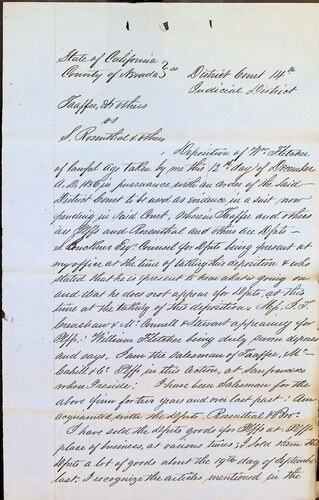 State of California
County of Nevada } ss District Court 14th
Judicial District
Taaffee, & others
vs
S. Rosenthal & others
Deposition of Wm Fletcher
of lawful age taken by me this 12th day of December
A.D. 1856 in pursuance with an order of the Said
District Court to be used as evidence in a suit now
pending in Said Court, wherein Taaffe and others
are Plffs and Rosenthal and others are Dfts —
Esqr Counsel for Dfts being present at
my office at the time of taking this deposition & who
stated that he is present to hear what is going on
and that he does not appear for Dfts. at this
time at the taking of this deposition. Mess. J. F.
Crenshaw & McConnell & Stewart appearing for
Plffs: William Fletcher being duly sworn deposes
and says. I am the Salesman of Taaffee, Mc-
Cahill & Co Plffs in this Action, at San francisco
where I reside: I have been Salesman for the
above firm for two years and over last past: Am
acquainted with the Dfts Rosenthal & Bro.
I have sold the Dfts goods for Plffs at Plffs
place of business, at various times; I sold them the
Dfts a lot of goods about the 19th day of September
last: I recognize the articles mentioned in the